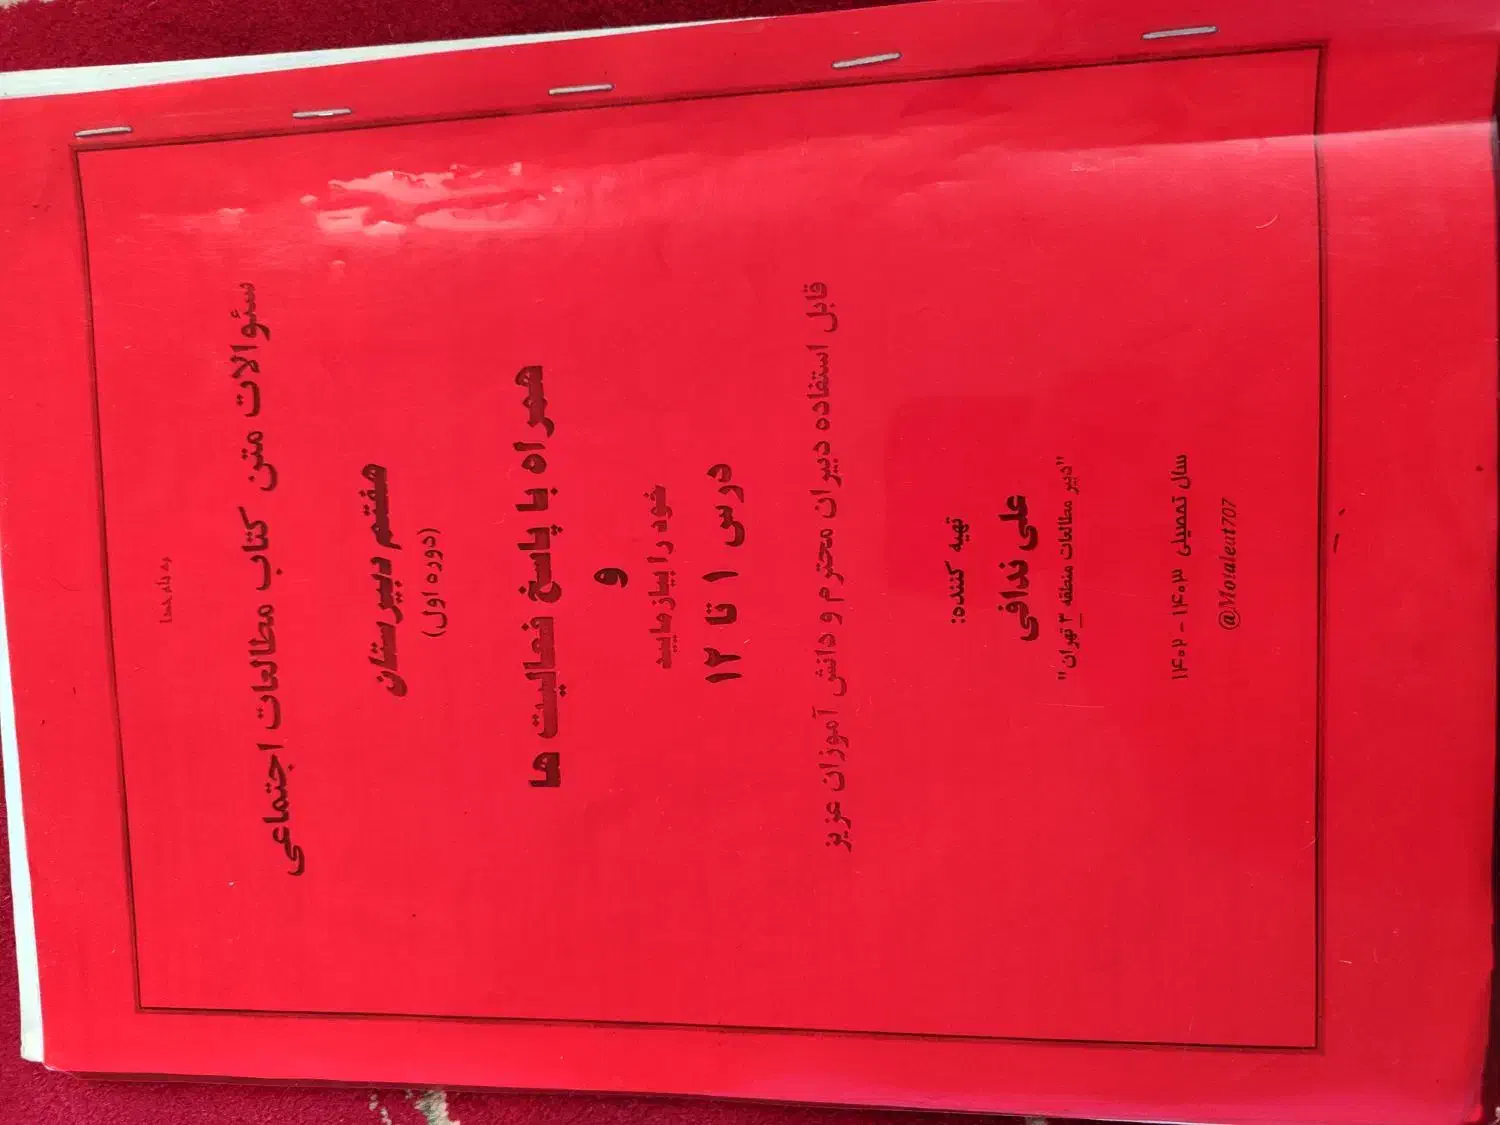 به نام خدا
سئوالات متن کتاب مطالعات اجتماعی
هفتم دبیرستان
(دوره اول)
همراه با پاسخ فعالیت ها
و
خود را بیازمایید
درس ۱ تا ۱۲
قابل استفاده دبیران محترم و دانش آموزان عزیز
تهیه کننده:
علی ندافی
"دبیر مطالعات منطقه ۳ تهران"
سال تحصیلی ۱۴۰۳ - ۱۴۰۲
@Motaleat707